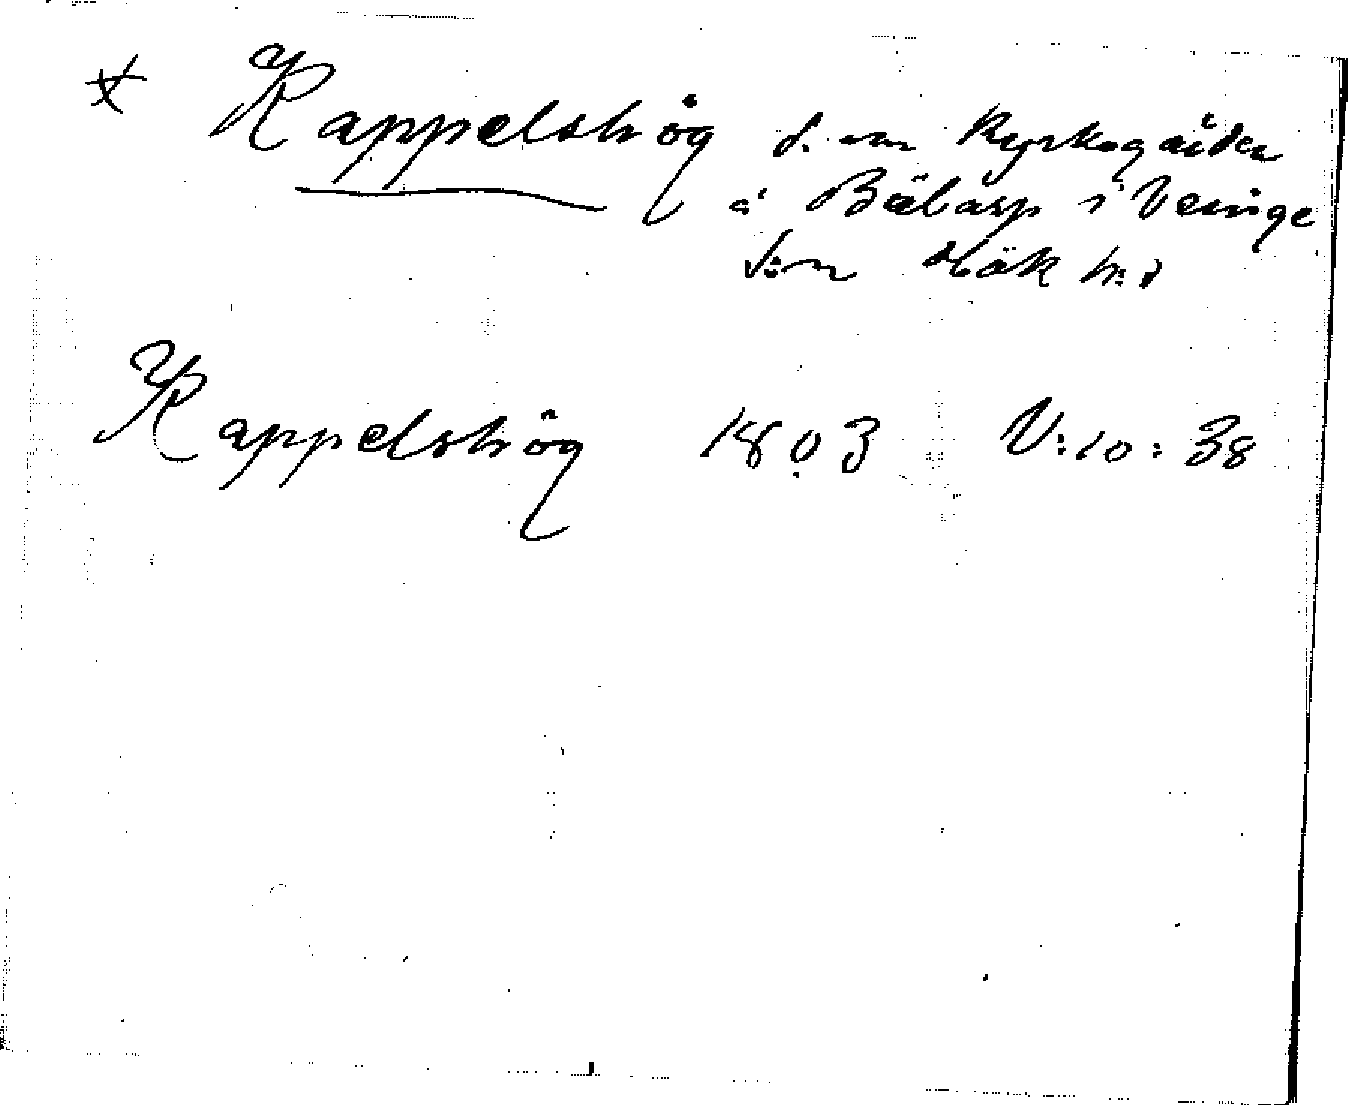 * Kappelshög d. om Kyrkogården
å Bölarp i Veinge
s:n Hök h:d
Kappelshög 1803 V:10:38